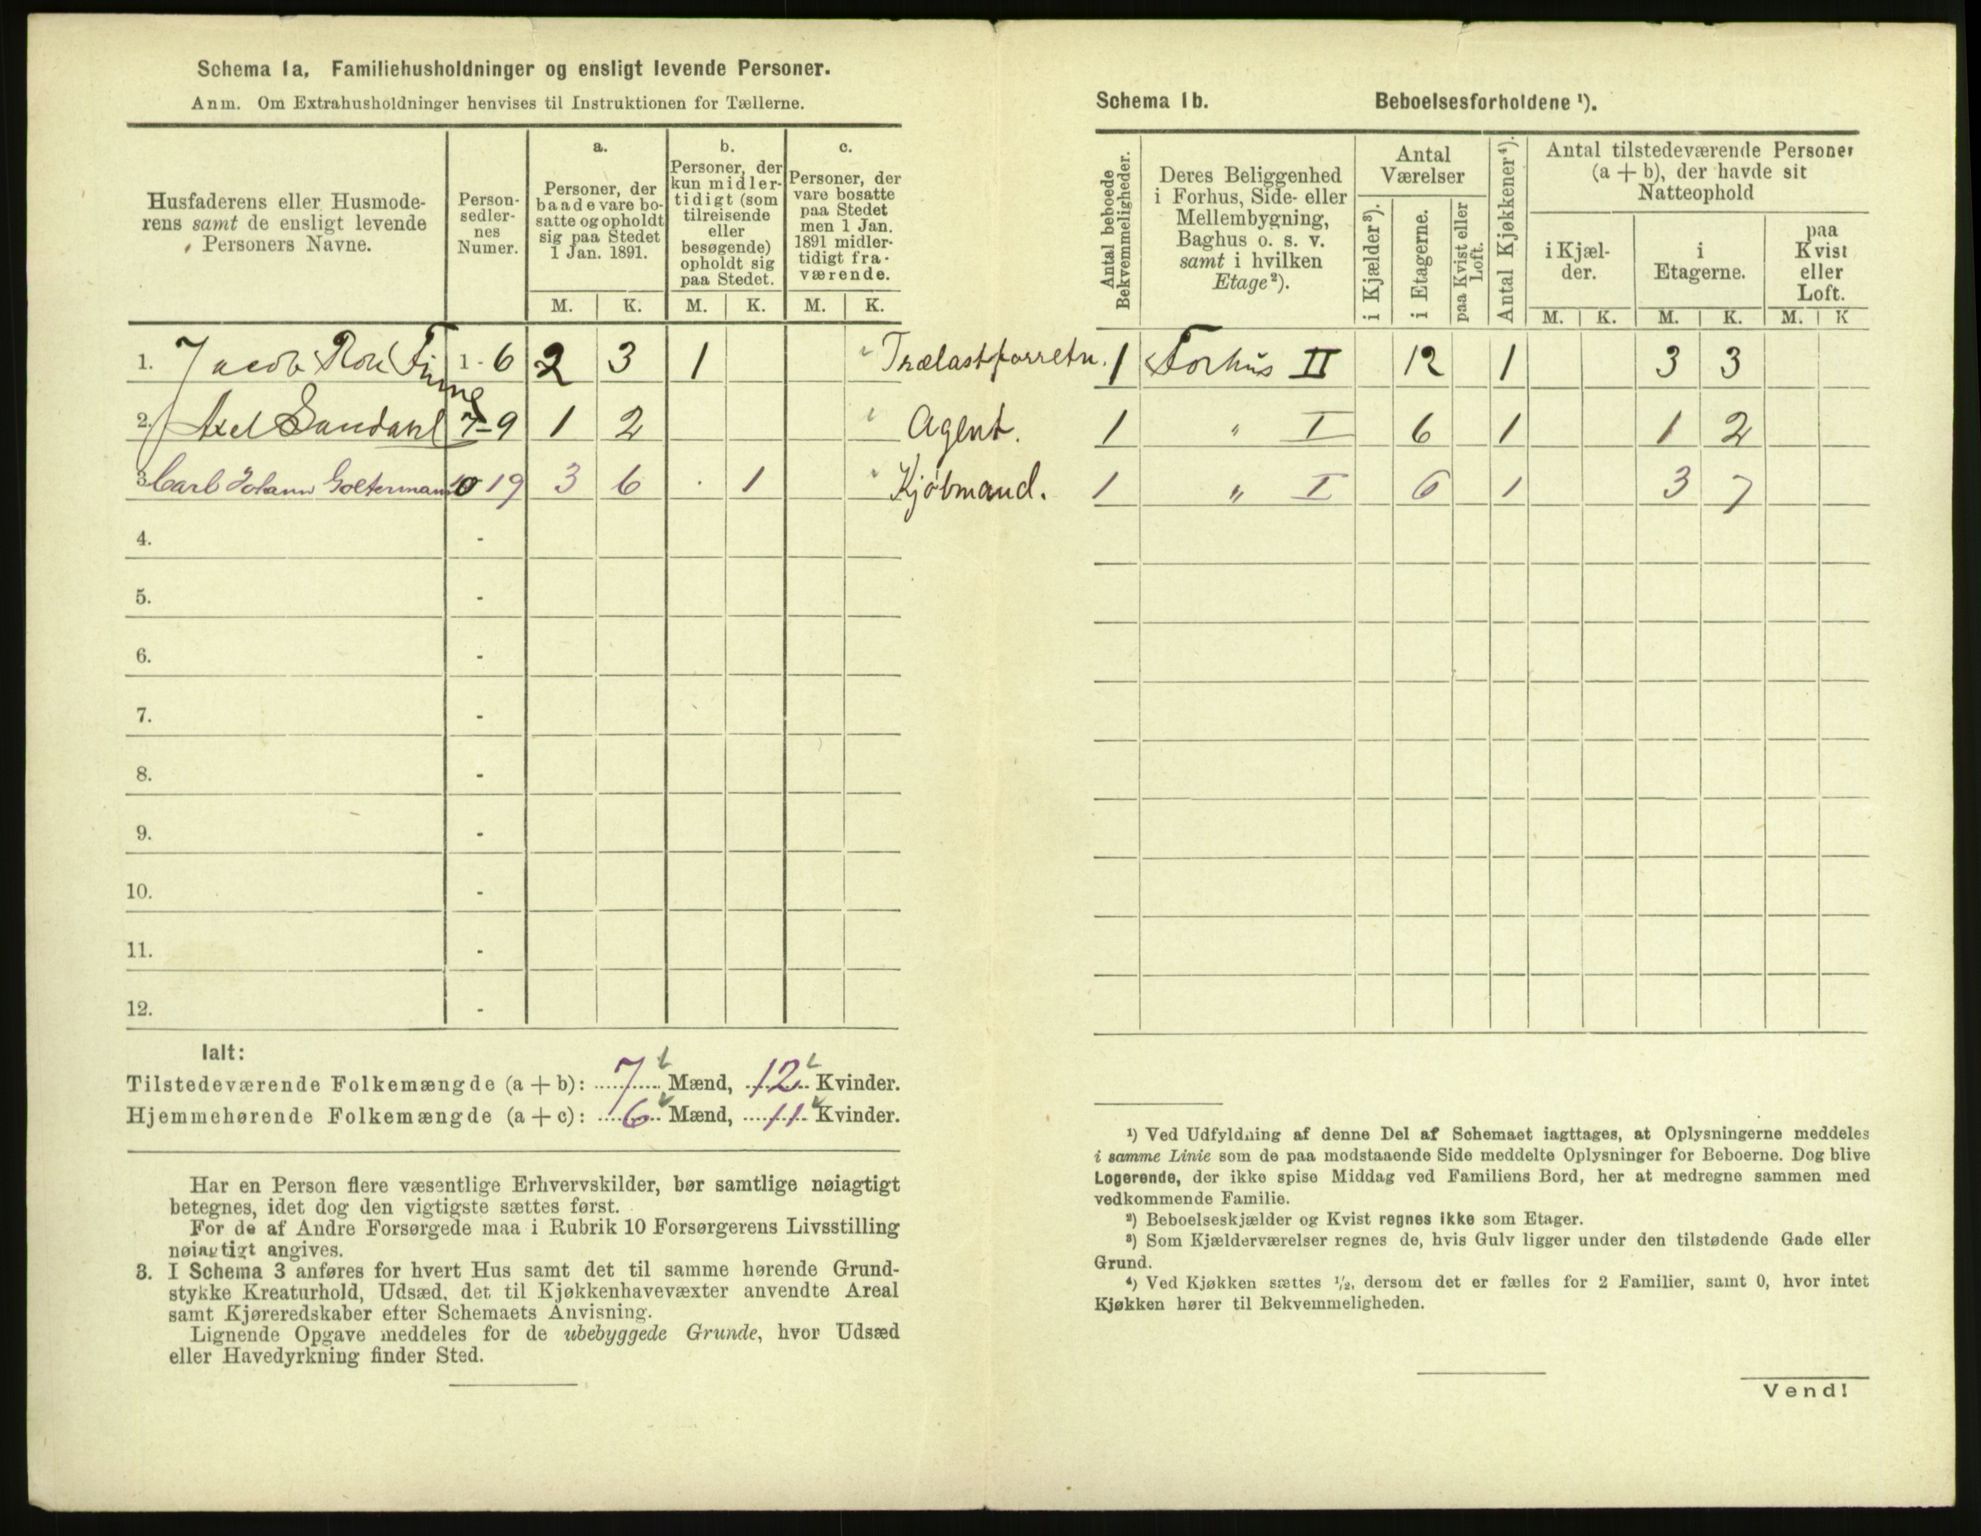 Schema 1a. Familiehusholdninger og ensligt levende Personer.
Anm. Om Extrahusholdninger henvises til Instruktionen for Tællerne.
Husfaderens eller Husmode-
rens samt de ensligt levende
Personers Navne.
Person-
sedler-
nes
Numer.
a.
Personer, der
baade vare bo-
satte og opholdt
sig paa Stedet
1 Jan. 1891.
b.
Personer, der
kun midler-
tidigt (som
tilreisende
eller
besøgende)
opholdt sig
paa Stedet.
c.
Personer, der
vare bosatte
paa Stedet
men 1 Jan.
1891 midler-
tidigt fra-
værende.
M. K. M. K. M. K.
1. Jacob Roll Finne 1 - 6 2 3 1 Trælastforretn.
2. Axel Sandahl 7-9 1 2 Agent.
3. Carl Johann Goltermann 10 19 3 6 . 1 Kjøbmand.
4. -
5. -
6. -
7. -
8. -
9. -
10. -
11. -
12. -
Ialt:
Tilstedeværende Folkemængde (a + b): 7 Mænd, 12 Kvinder.
Hjemmehørende Folkemængde (a + c): 6 Mænd, 11 Kvinder.
Har en Person flere væsentlige Erhvervskilder, bør samtlige nøiagtigt
betegnes, idet dog den vigtigste sættes først.
For de af Andre Forsørgede maa i Rubrik 10 Forsørgerens Livsstilling
nøiagtigt angives.
3. I Schema 3 anføres for hvert Hus samt det til samme hørende Grund-
stykke Kreaturhold, Udsæd, det til Kjøkkenhavevæxter anvendte Areal
samt Kjøreredskaber efter Schemaets Anvisning.
Lignende Opgave meddeles for de ubebyggede Grunde, hvor Udsæd
eller Havedyrkning finder Sted.
Schema 1b. Beboelsesforholdene ¹).
Antal beboede
Bekvemmeligheder.
Deres Beliggenhed
i Forhus, Side- eller
Mellembygning,
Baghus o. s. v.
samt i hvilken
Etage²).
Antal
Værelser
i Kjælder³).
i Etagerne.
paa Kvist eller
Loft.
Antal Kjøkkener⁴).
Antal tilstedeværende Personer
(a + b), der havde sit
Natteophold
i Kjæl-
der.
i
Etagerne.
paa
Kvist
eller
Loft.
M. K. M. K. M. K
1 Forhus II 12 1 3 3
1 " I 6 1 1 2
1 " I 6 1 3 7
¹) Ved Udfyldning af denne Del af Schemaet iagttages, at Oplysningerne meddeles
i samme Linie som de paa modstaaende Side meddelte Oplysninger for Beboerne. Dog blive
Logerende, der ikke spise Middag ved Familiens Bord, her at medregne sammen med
vedkommende Familie.
²) Beboelseskjælder og Kvist regnes ikke som Etager.
³) Som Kjælderværelser regnes de, hvis Gulv ligger under den tilstødende Gade eller
Grund.
⁴) Ved Kjøkken sættes ½, dersom det er fælles for 2 Familier, samt 0, hvor intet
Kjøkken hører til Bekvemmeligheden.
Vend!